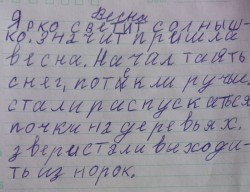 Весна
Ярко светит солныш-
ко. Значит пришла
весна. Начал таять
снег, потекли ручьи,
стали распускаться
почки на деревьях.
звери стали выходи-
ть из норок.